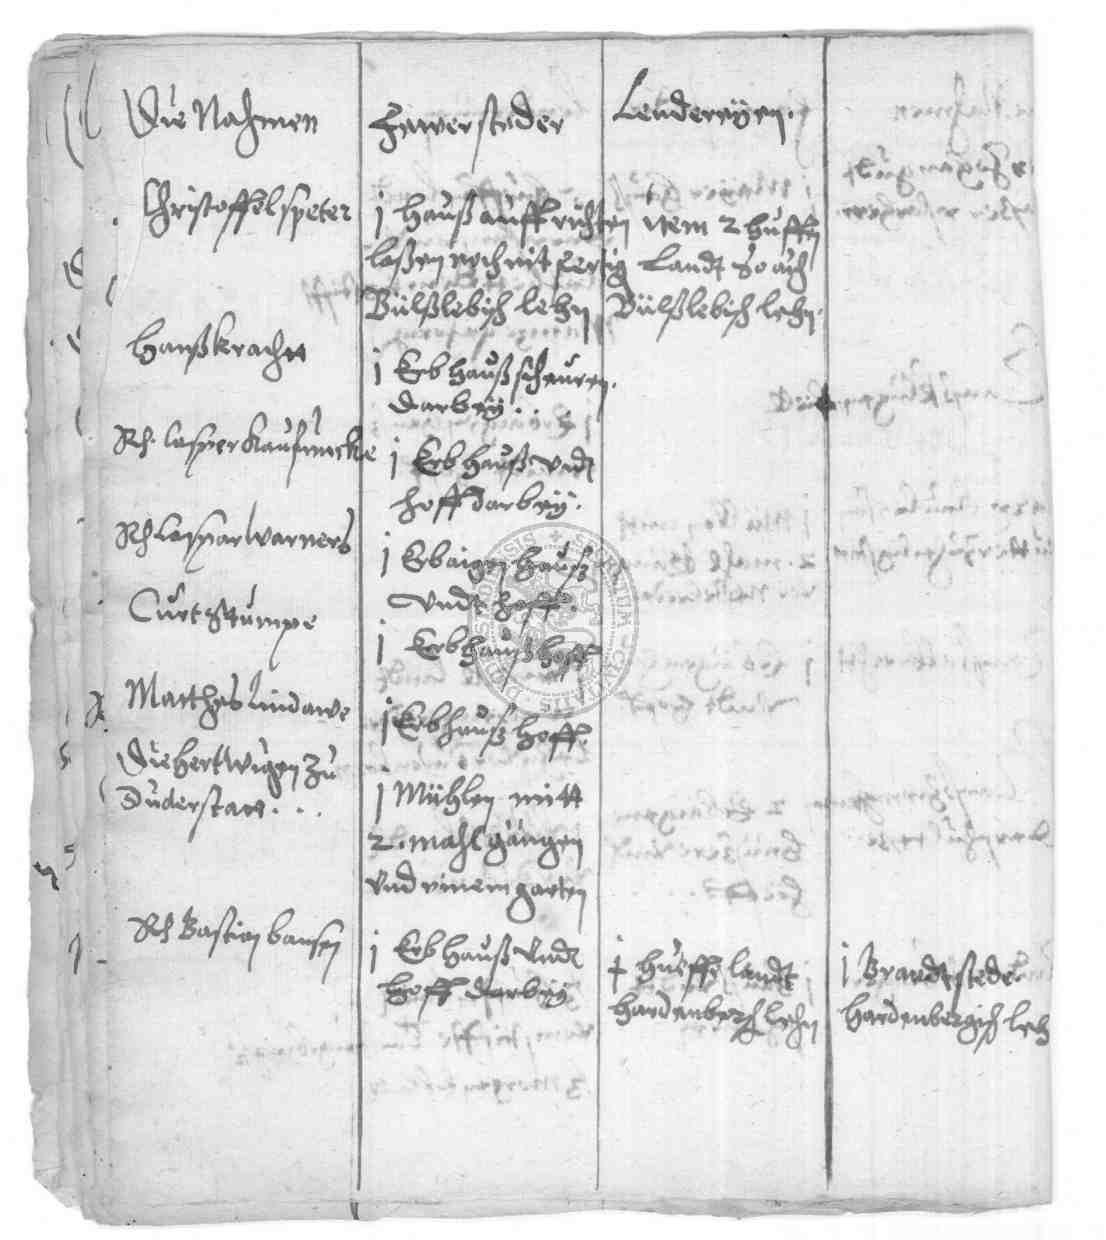 Die Nahmen
Fewersteder
Lendereyen.
Christoffel Speter
j Hauß auffrichten
laßen noch nit fertig
Bülßlebisch lehn
item 2 huffen
Landt so auch
Bülßlebisch lehn.
Hanß Kracht
j Erbhauß scheuren
darbey.
Rh. Casper Kauf
j Erbhauß undt
hoff darbey.
Rh Caspar Warners
j Erbaigen hauß
undt hoff.
Curt Stumpe
j Erbhauß hoff
Matthes Lindawe
j Erbhauß hoff.
Die hertwigen zu
Duderstatt . . .
j Mühlen mitt
2. mahlgängen
und einem garten
Rh Bastian Hansen
j Erbhauß undt
hoff darbey
huffe landt
hardenbergh lehn
j Brandtstede
hardenbergisch leh
SIGILLUM CIVITATIS